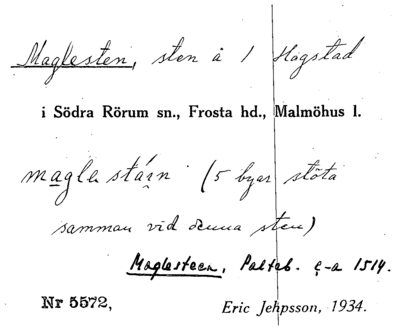 Maglesten, sten å 1 Hogstad
i Södra Rörum sn., Frosta hd., Malmöhus l.
magle stárn (5 byar stöta
samman vid denna sten)
Maglesteen, Palteb. ç-a 1514.
Nr 5572,
Eric Jehpsson, 1934.